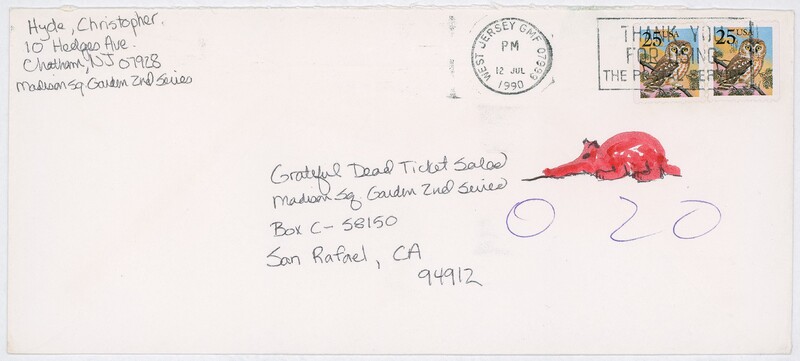 Hyde, Christopher.
10 Hedges Ave.
Chatham, NJ 07928
Madison Sq. Garden 2nd Series
WEST JERSEY GMF 07999
PM
12 JUL
1990
THANK YOU
FOR USING
THE POSTAL SERVICE
25 USA
25 USA
Grateful Dead Ticket Sales
Madison Sq. Garden 2nd Series
Box C- 58150
San Rafael, CA
94912
0 20